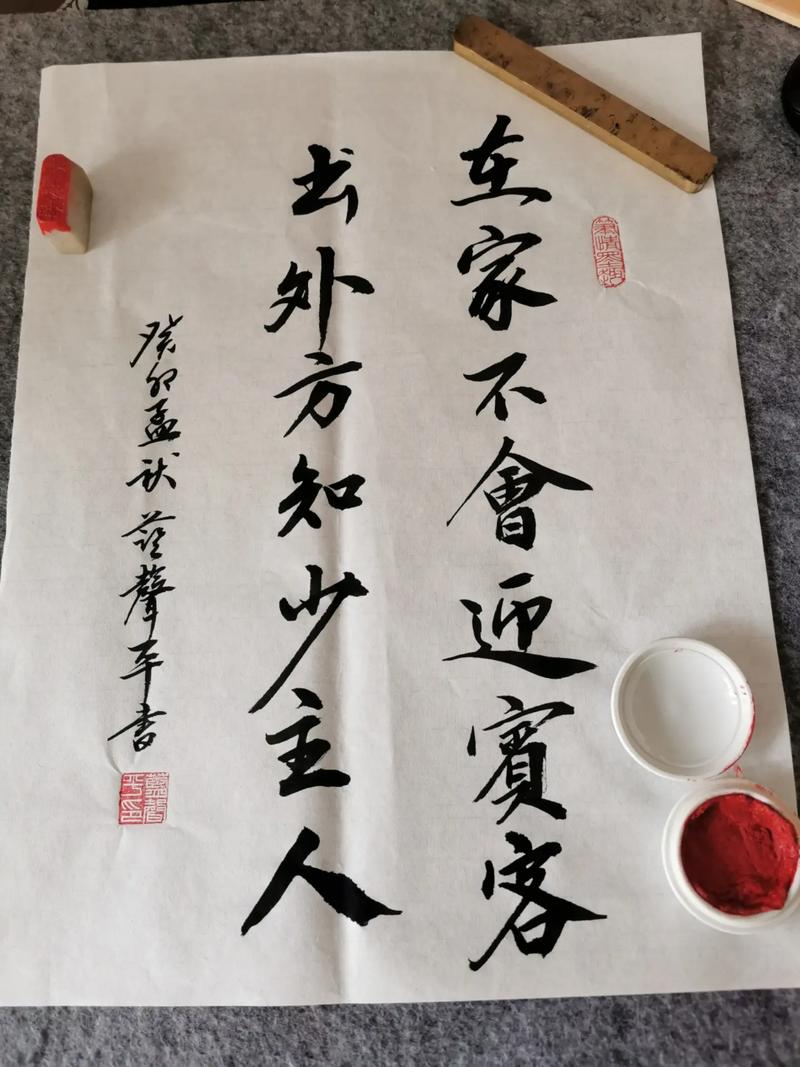 在家不會迎賓客
出外方知少主人
癸卯孟秋 藍聲平書
藍聲平印